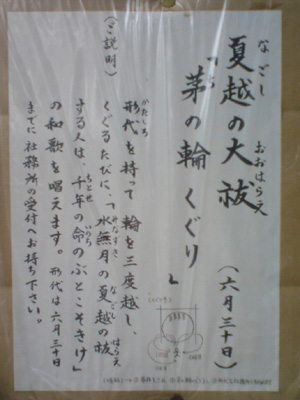 夏越の大祓
なごし
おおはらえ
(六月三十日)
「茅の輪くぐり」
ち
わ
(ご説明)
形代を持って輪を三度越し、
かたしろ
くぐるたびに、「水無月の夏越の祓
みなづき
なごし
はらえ
する人は、千年の命のぶとこそきけ」
ちとせ
いのち
の和歌を唱えます。形代は六月三十日
までに社務所の受付へお持ち下さい。